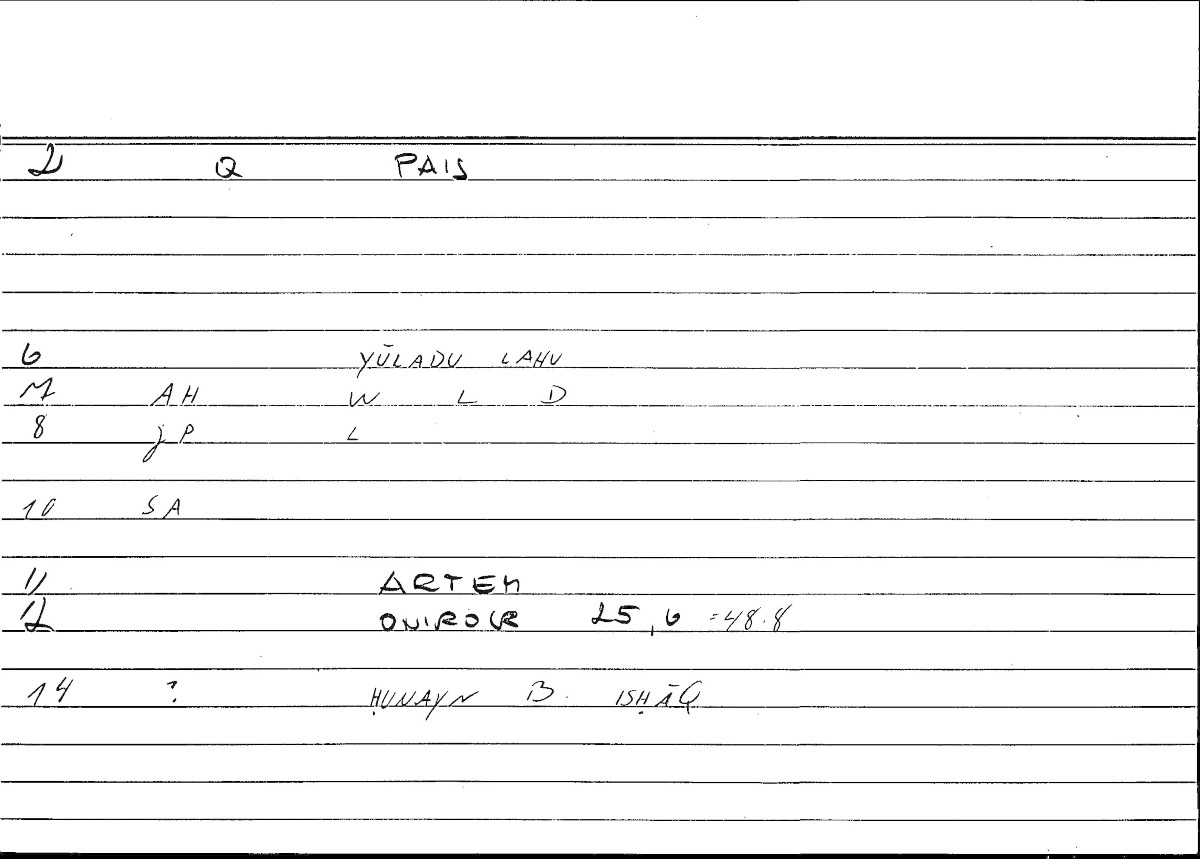 2 Q PAIS
6 YŪLADU LAHU
7 AH W L D
8 jP L
10 SA
11 ARTEM
12 ONIROCR 25,6 =48.8
14 ? ḤUNAYN B. ISḤĀQ